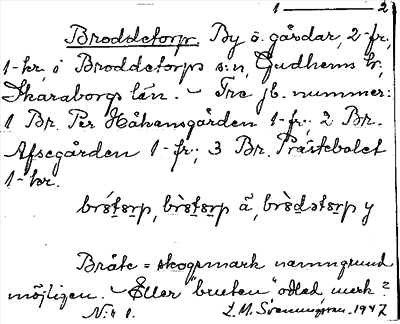 1 — 2
Broddetorp. By o. gårdar, 2 fr,
1 kr, i Broddetorps s:n, Gudhems hr,
Skaraborgs län. - Tre jb. nummer:
1 Br. Per Håkansgården 1 fr; 2 Br.
Afsegården 1 fr; 3 Br. Prästebolet
1 kr.
brós̱tọrp, bròs̱tọrp ä, bròdstọrp y
Bråte = skogsmark namngrund
möjligen. - Eller "bruten" odlad mark?
N:r 1. 1947